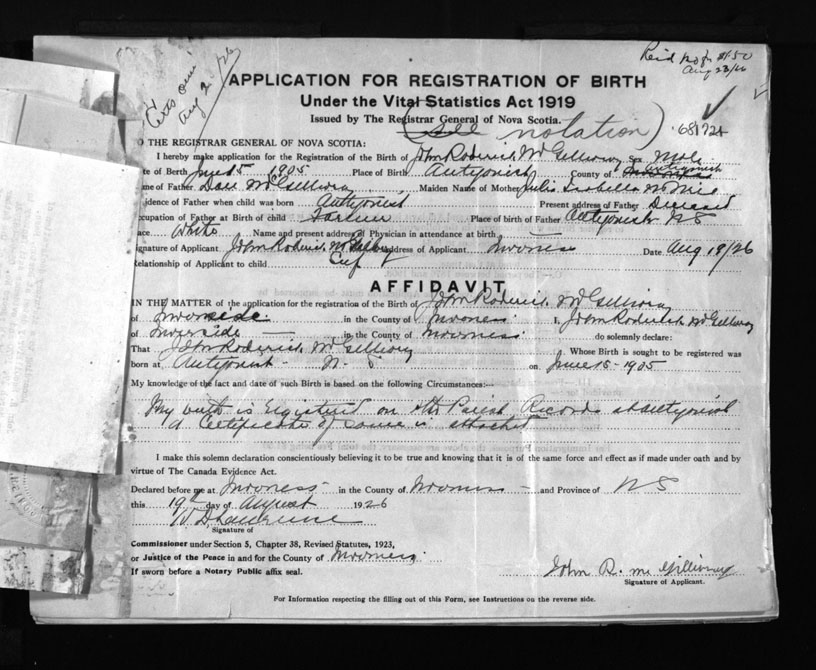 Certs omi
Aug 2/26
Reid no fr $1.50
Aug 23/26
APPLICATION FOR REGISTRATION OF BIRTH
Under the Vital Statistics Act 1919
Issued by The Registrar General of Nova Scotia.
(See notation)
681724
TO THE REGISTRAR GENERAL OF NOVA SCOTIA:
I hereby make application for the Registration of the Birth of John Roderick McGillivray Sex Male
Date of Berth June 15 1905 Place of Birth Antigonish County of Antigonish
Name of Father Dan McGillivray Maiden Name of Mother Julia Isabella McNeil
Residence of Father when child was born Antigonish Present address of Father Deceased
Occupation of Father at Birth of child Farmer Place of birth of Father Antigonish NS
Race White Name and present address of Physician in attendance at birth
Signature of Applicant John Roderick McGillivray Address of Applicant Inverness Date Aug 19/26
Relationship of Applicant to child
AFFIDAVIT
IN THE MATTER of the application for the registration of the Birth of John Roderick McGillivray
of Inverside in the County of Inverness I, John Roderick McGillivray
of Inverside in the County of Inverness do solemnly declare:
That John Roderick McGillivray Whose Birth is sought to be registered was
born at Antigonish N. S. on June 15-1905
My knowledge of the fact and date of such Birth is based on the following Circumstances:—
My birth is Registered on the Parish Records at Antigonish
A Certificate of same is attached
I make this solemn declaration conscientiously believing it to be true and knowing that it is of the same force and effect as if made under oath and by
virtue of The Canada Evidence Act.
Declared before me at Inverness in the County of Inverness and Province of NS
this 19th day of August 1926
Signature of
Commissioner under Section 5, Chapter 38, Revised Statutes, 1923,
or Justice of the Peace in and for the County of Inverness
If sworn before a Notary Public affix seal.
John R. McGillivray
Signature of Applicant.
For Information respecting the filling out of this Form, see Instructions on the reverse side.